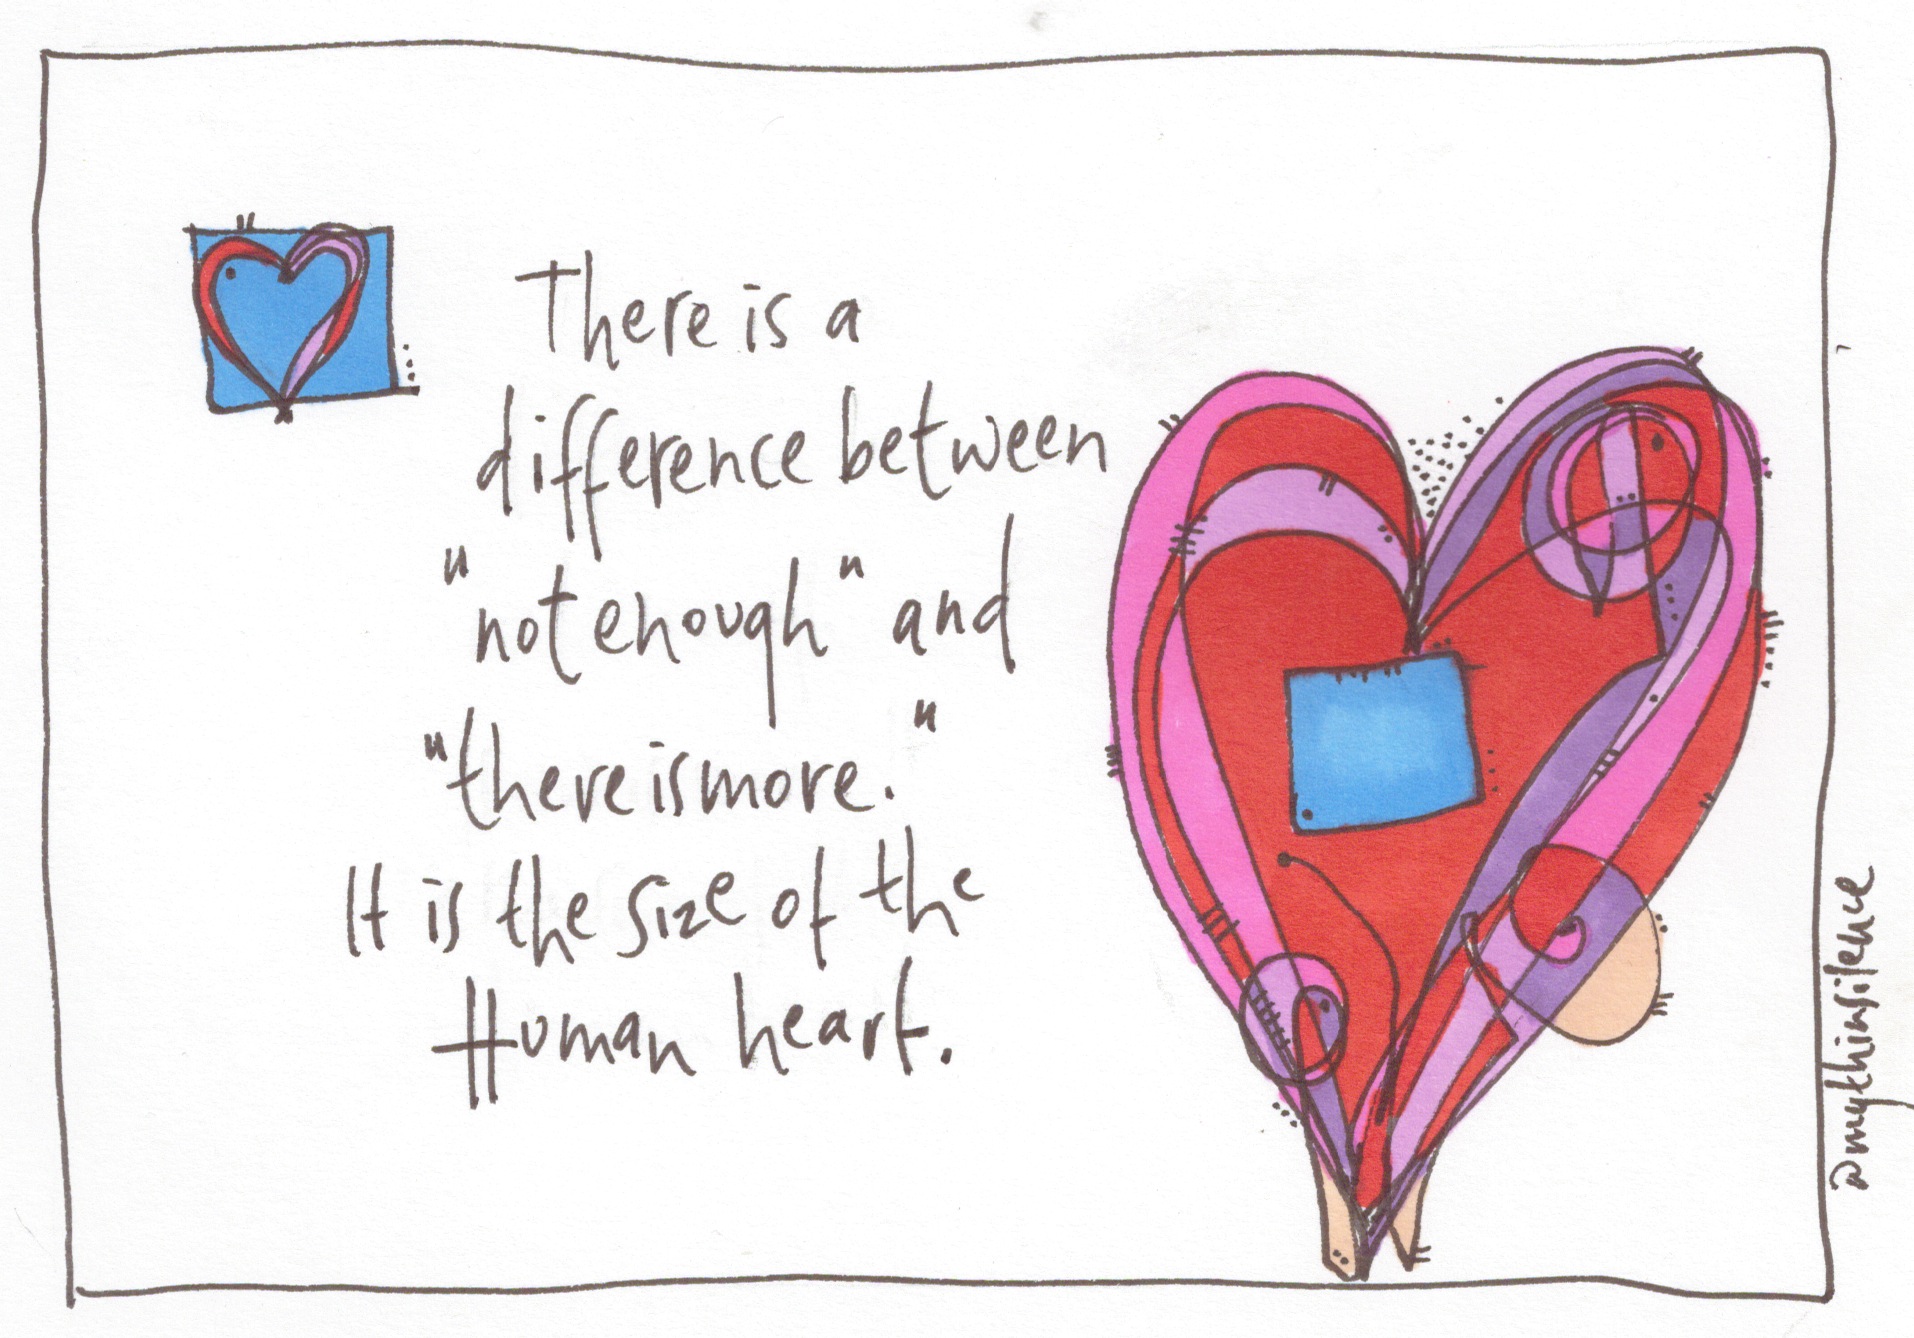 There is a
difference between
"not enough" and
"there is more."
It is the size of the
Human heart.
@mykhinsilence